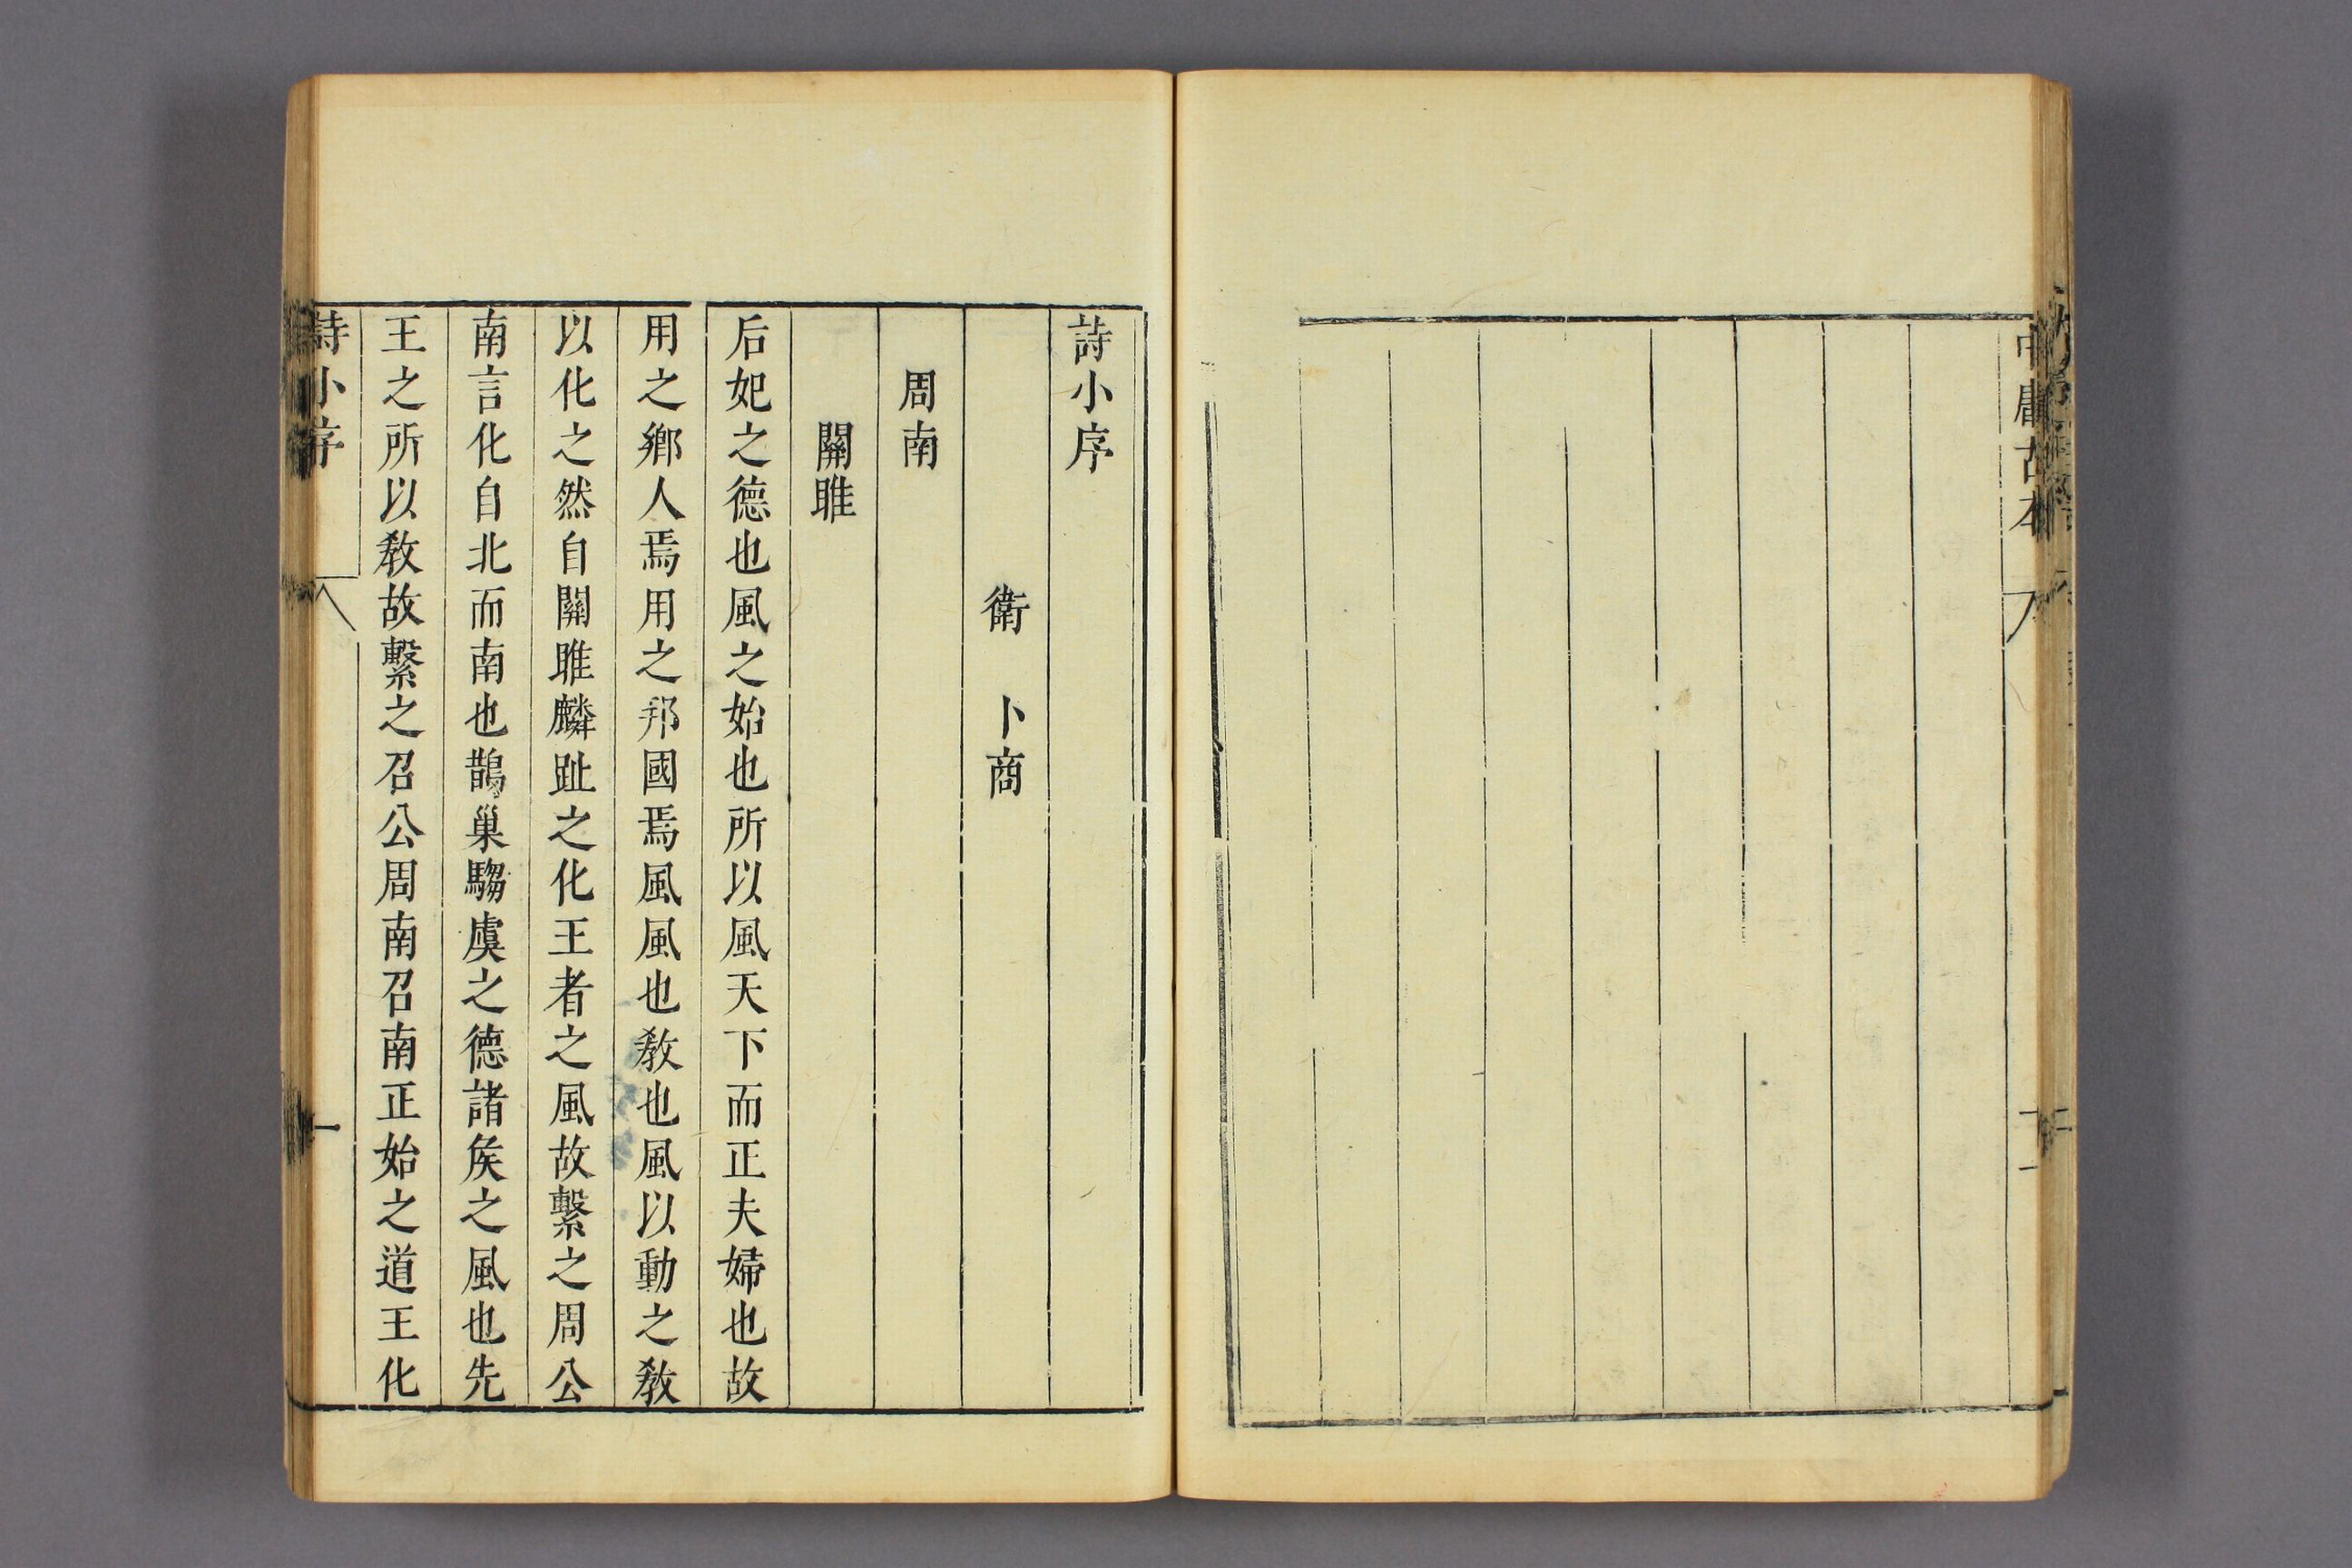 中庸古本
詩小序
衛　卜商
周南
關雎
后妃之德也風之始也所以風天下而正夫婦也故
用之鄉人焉用之邦國焉風風也敎也風以動之敎
以化之然自關雎麟趾之化王者之風故繫之周公
南言化自北而南也鵲巢騶虞之德諸矦之風也先
王之所以敎故繫之召公周南召南正始之道王化
詩小序
一